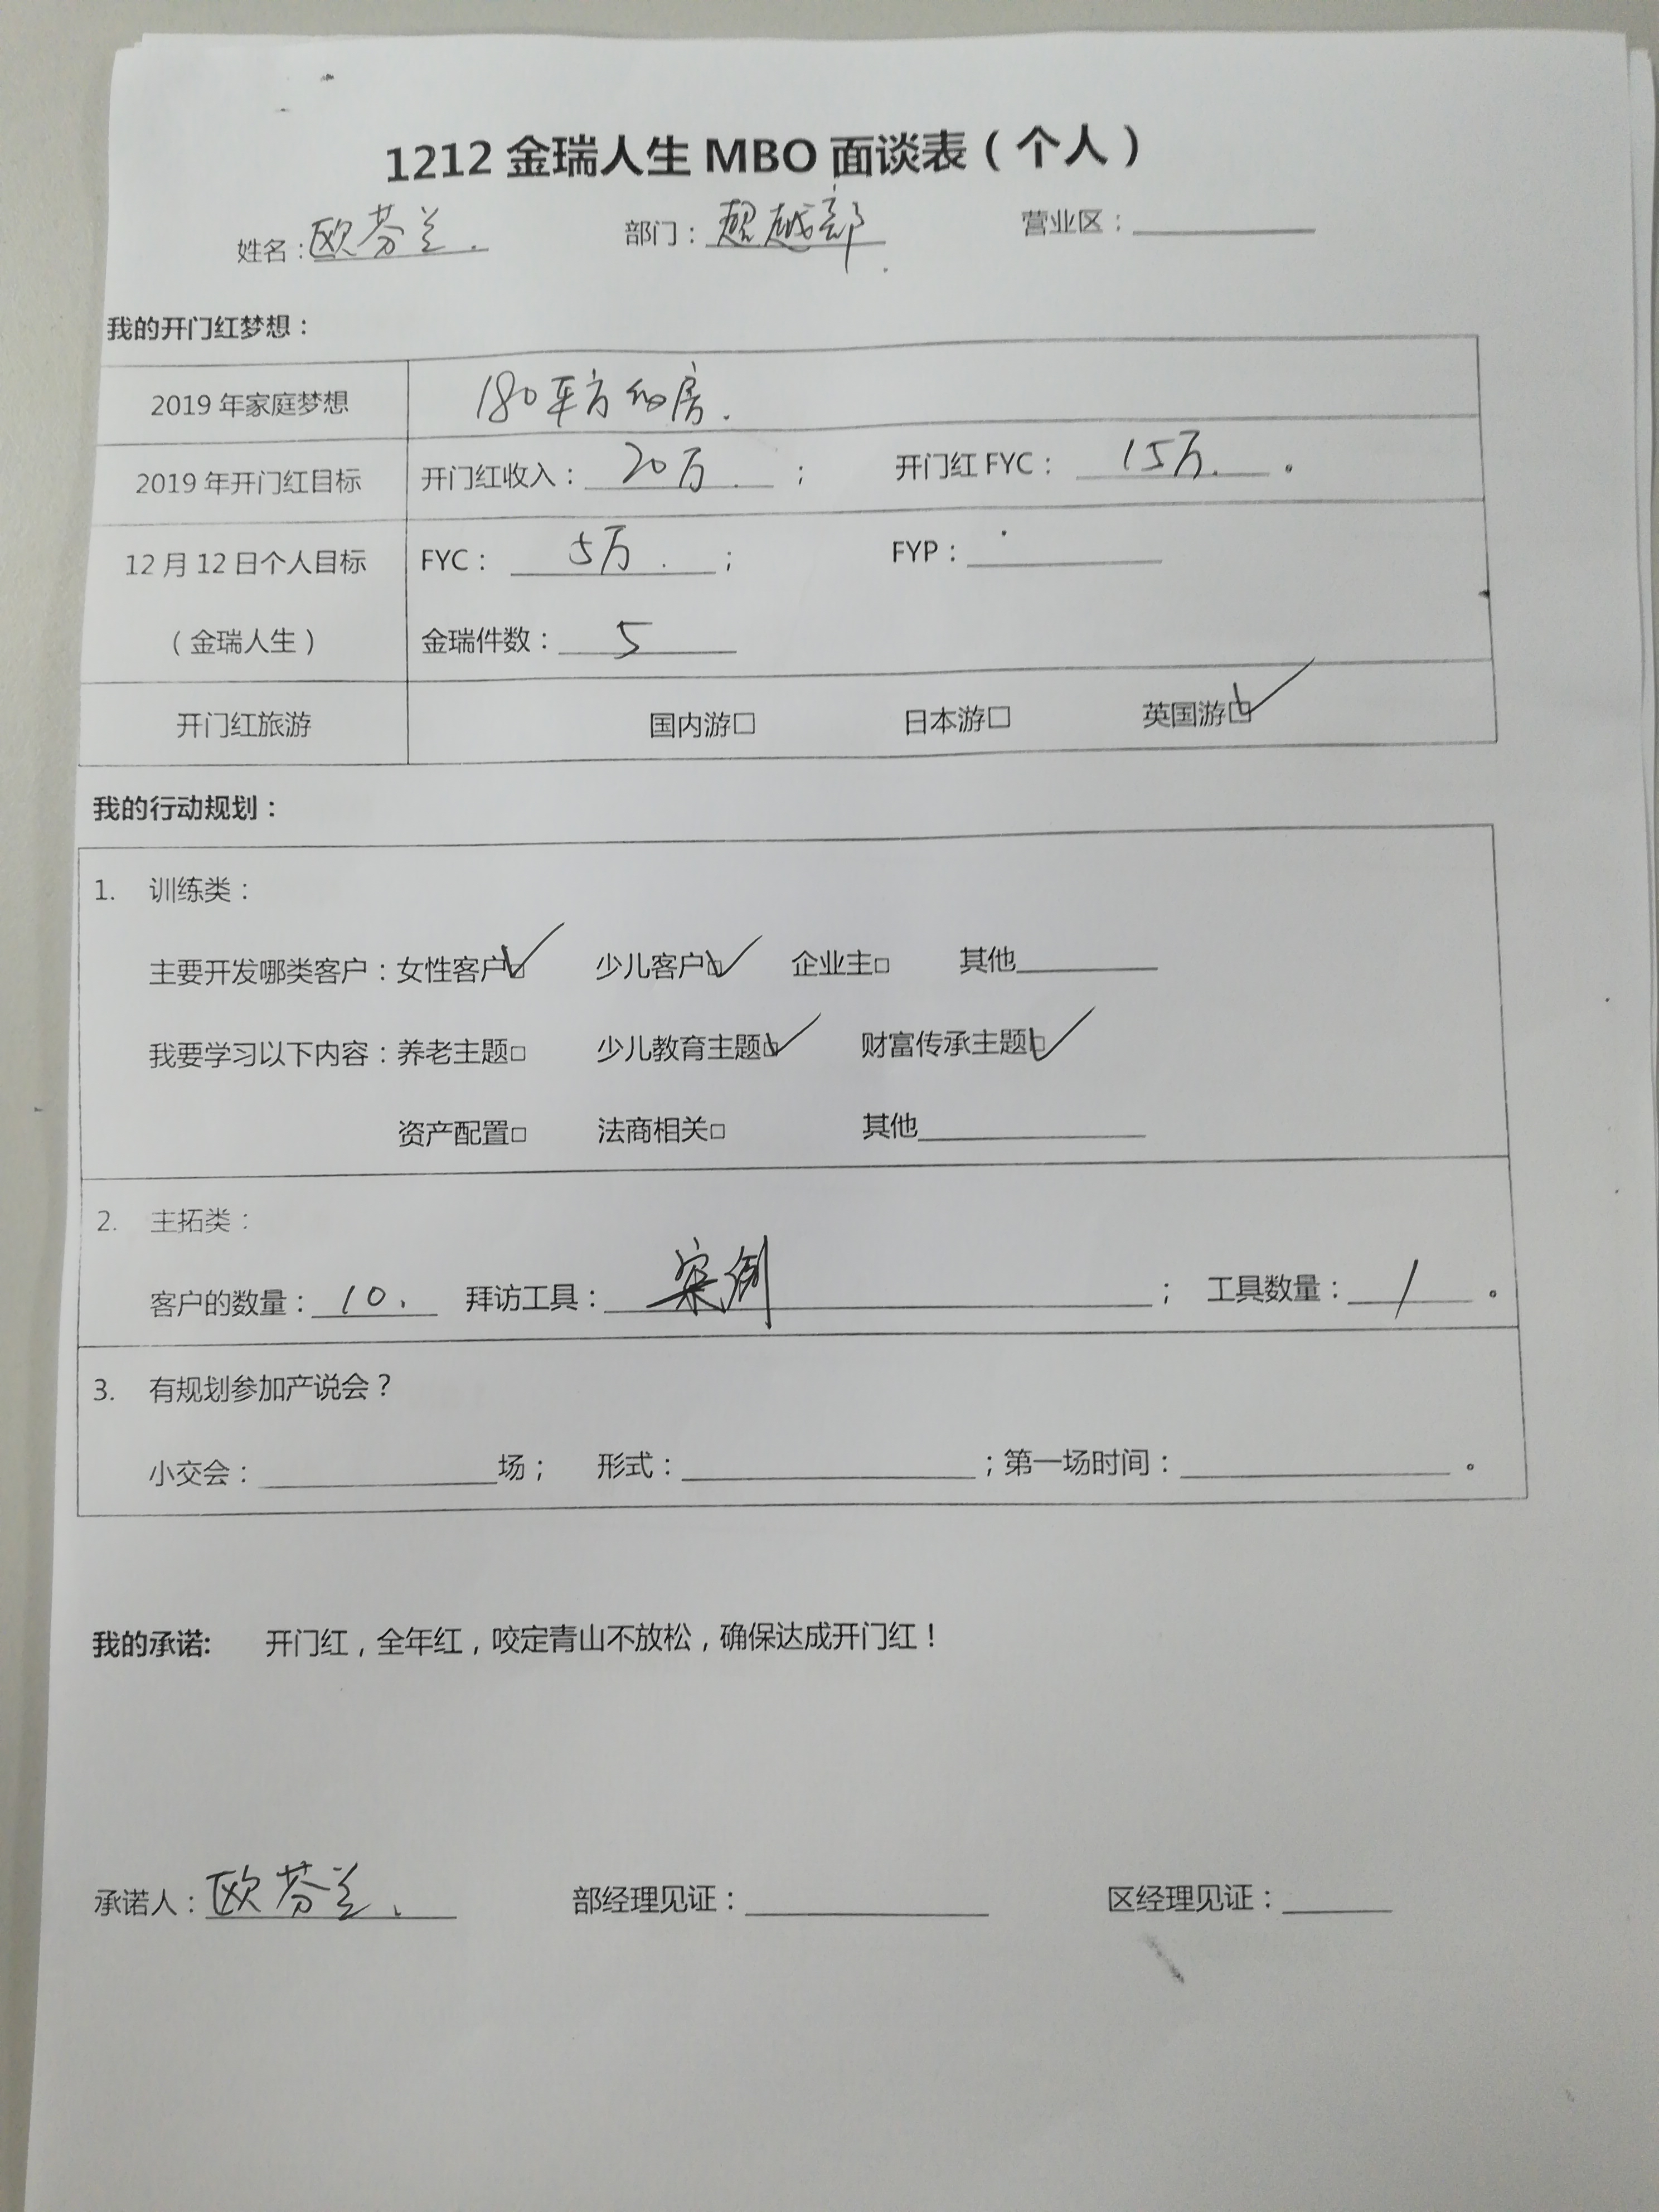 1212金瑞人生MBO面谈表（个人）
姓名：欧芬兰. 部门：超越部. 营业区：
我的开门红梦想：
2019年家庭梦想 180平方的房.
2019年开门红目标 开门红收入：20万. ； 开门红FYC：15万. 。
12月12日个人目标 FYC：5万. ； FYP：
（金瑞人生） 金瑞件数：5
开门红旅游 国内游□ 日本游□ 英国游☑
我的行动规划：
1. 训练类：
主要开发哪类客户：女性客户☑ 少儿客户☑ 企业主□ 其他
我要学习以下内容：养老主题□ 少儿教育主题☑ 财富传承主题☑
资产配置□ 法商相关□ 其他
2. 主拓类：
客户的数量：10. 拜访工具：案例 ； 工具数量：1 。
3. 有规划参加产说会？
小交会： 场； 形式： ；第一场时间： 。
我的承诺: 开门红，全年红，咬定青山不放松，确保达成开门红！
承诺人：欧芬兰. 部经理见证： 区经理见证：